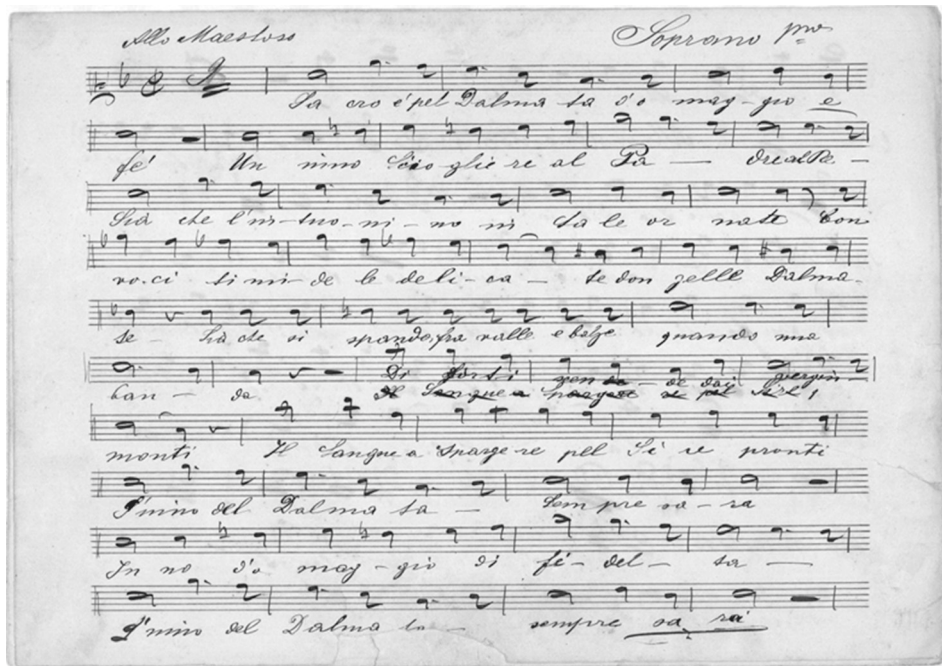 Allo Maestoso Soprano pmo
Sa cro è pel Dalma ta d'o mag-gio e
fe' Un inno scio glie re al Pa — dre al Re. —
Sia che l'in-tuo-ni-no in sa le or nate Con
vo.ci timi-de le de li-ca - te don zelle Dalma-
te — Sia che si spande fra valle e balze quando una
ban — da Di forti gen — de dai
monti Il Sangue a sparge re pel Si re pronti
L'inno del Dalma ta — Sempre sa-ra
In no d'o mag-gio di fe-del-ta —
L'inno del Dalma ta — sempre sa rà